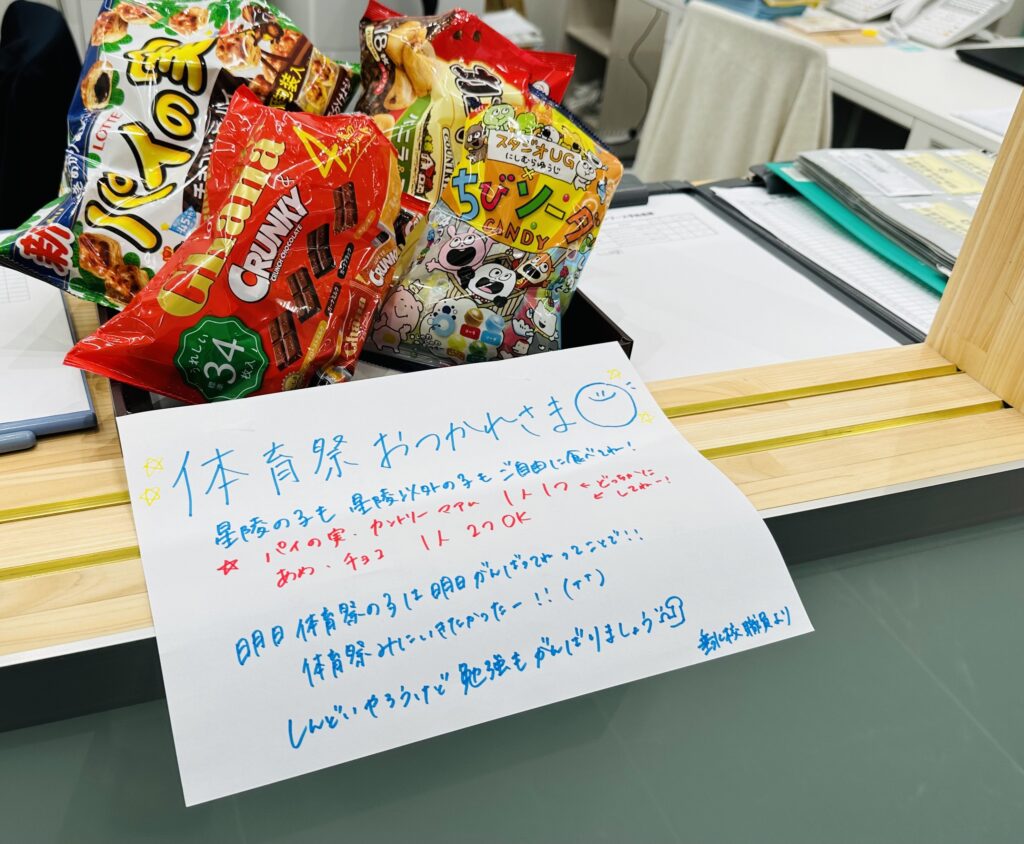 新
LOTTE
パイの実
Ghana
&
CRUNKY
CRUNCHY CHOCOLATE
うれしい
標準
34
枚入
スタジオUG
にしむらゆうじ
×
ちびソーダ
CANDY
体育祭 おつかれさま
星陵の子も 星陵以外の子も ご自由に食べてね!
☆ パイの実・カントリーマアム 1人1つ ← どっちかに
してねー!
あめ・チョコ 1人 2つOK
明日 体育祭の子は 明日がんばってねってことで!!
体育祭みにいきたかったー!! (TT)
しんどいやろうけど 勉強もがんばりましょう
職員より